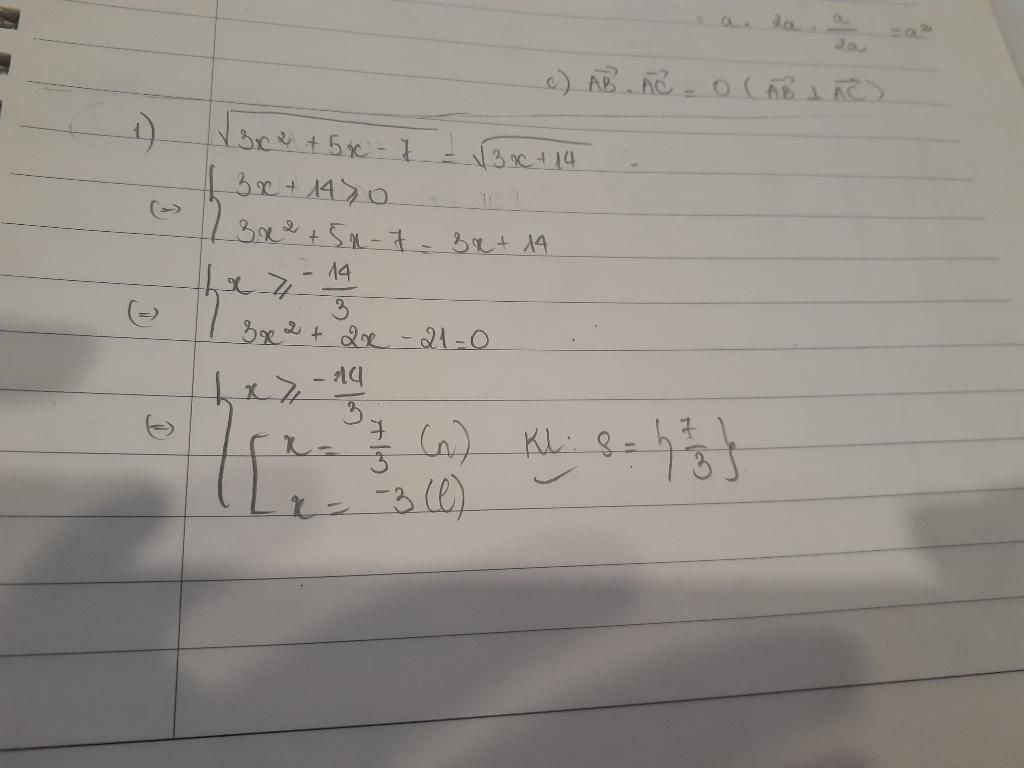 = a. 2a. a/2a = a²
c) AB→ . AC→ = 0 ( AB→ ⊥ AC→ )
1) √(3x² + 5x - 7) = √(3x + 14)
(=) { 3x + 14 ⩾ 0
3x² + 5x - 7 = 3x + 14
(=) { x ⩾ -14/3
3x² + 2x - 21 = 0
(=) { x ⩾ -14/3
[ x = 7/3 (n) KL: S = {7/3}
x = -3 (l)